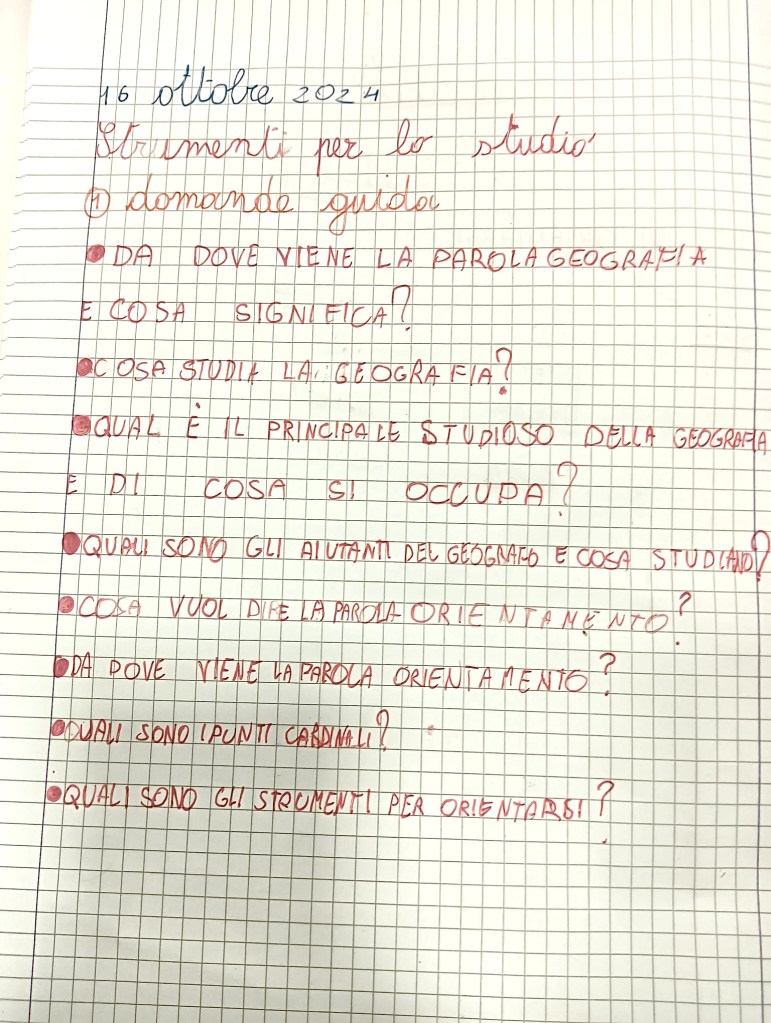 16 ottobre 2024
Strumenti per lo studio
① domande guida
• DA DOVE VIENE LA PAROLA GEOGRAFIA
E COSA SIGNIFICA?
• COSA STUDIA LA GEOGRAFIA?
• QUAL È IL PRINCIPALE STUDIOSO DELLA GEOGRAFIA
E DI COSA SI OCCUPA?
• QUALI SONO GLI AIUTANTI DEL GEOGRAFO E COSA STUDIANO?
• COSA VUOL DIRE LA PAROLA ORIENTAMENTO?
• DA DOVE VIENE LA PAROLA ORIENTAMENTO?
• QUALI SONO I PUNTI CARDINALI?
• QUALI SONO GLI STRUMENTI PER ORIENTARSI?